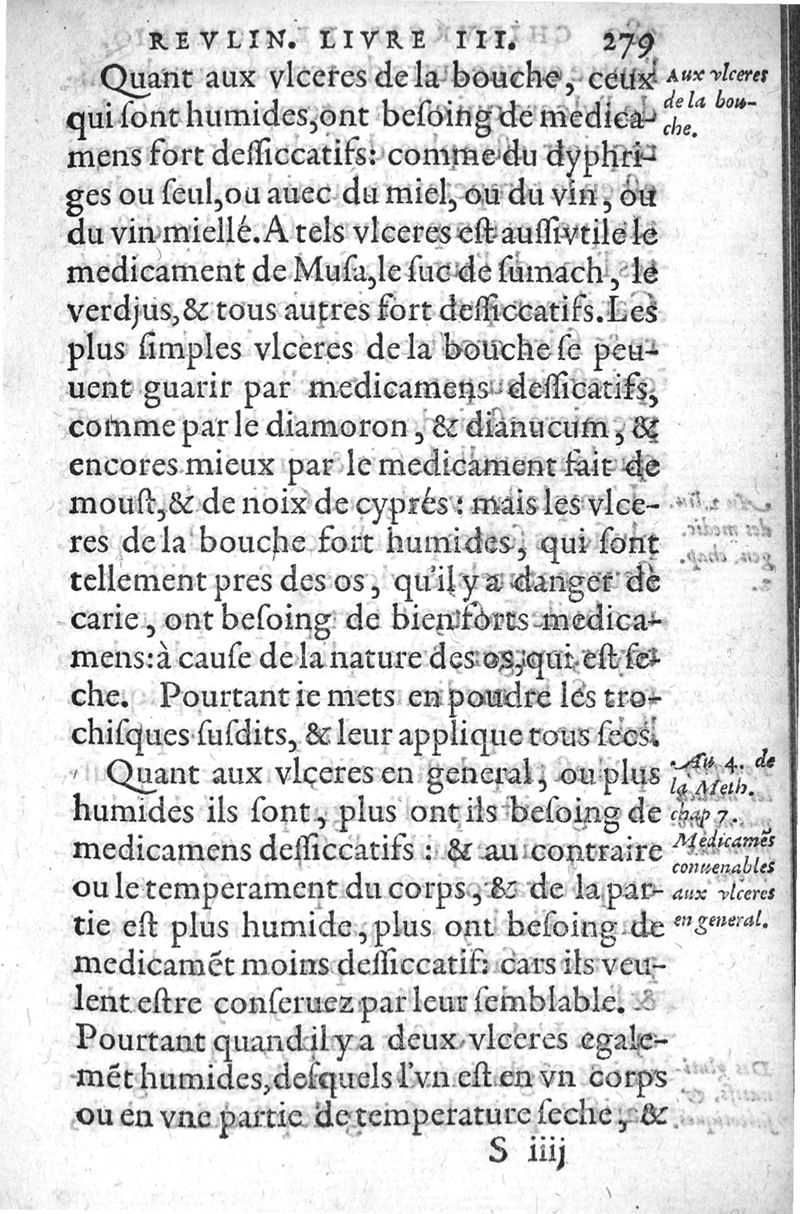 REVLIN. LIVRE III. 279
Quant aux vlceres de la bouche, ceux
qui ſont humides, ont beſoing de medica-
mens fort deſſiccatifs: comme du dyphri-
ges ou ſeul, ou auec du miel, ou du vin, ou
du vin miellé. A tels vlceres eſt auſſi vtile le
medicament de Muſa, le ſuc de ſumach, le
verdjus, & tous autres fort deſſiccatifs. Les
plus ſimples vlceres de la bouche ſe peu-
uent guarir par medicamens deſſicatifs,
comme par le diamoron, & dianucum, &
encores mieux par le medicament fait de
mouſt, & de noix de cyprés: mais les vlce-
res de la bouche fort humides, qui ſont
tellement pres des os, qu'il y a danger de
carie, ont beſoing de bien forts medica-
mens: à cauſe de la nature des os, qui eſt ſe-
che. Pourtant ie mets en poudre les tro-
chiſques ſuſdits, & leur applique tous ſecs.
Quant aux vlceres en general, ou plus
humides ils ſont, plus ont ils beſoing de
medicamens deſſiccatifs: & au contraire
ou le temperament du corps, & de la par-
tie eſt plus humide, plus ont beſoing de
medicamẽt moins deſſiccatif: cars ils veu-
lent eſtre conſeruez par leur ſemblable.
Pourtant quand il y a deux vlceres egale-
mẽt humides, deſquels l'vn eſt en vn corps
ou en vne partie de temperature ſeche, &
S iiij
Aux vlceres
de la bou-
che.
Au 4. de
la Meth.
chap 7.
Medicamẽs
conuenables
aux vlceres
en general.